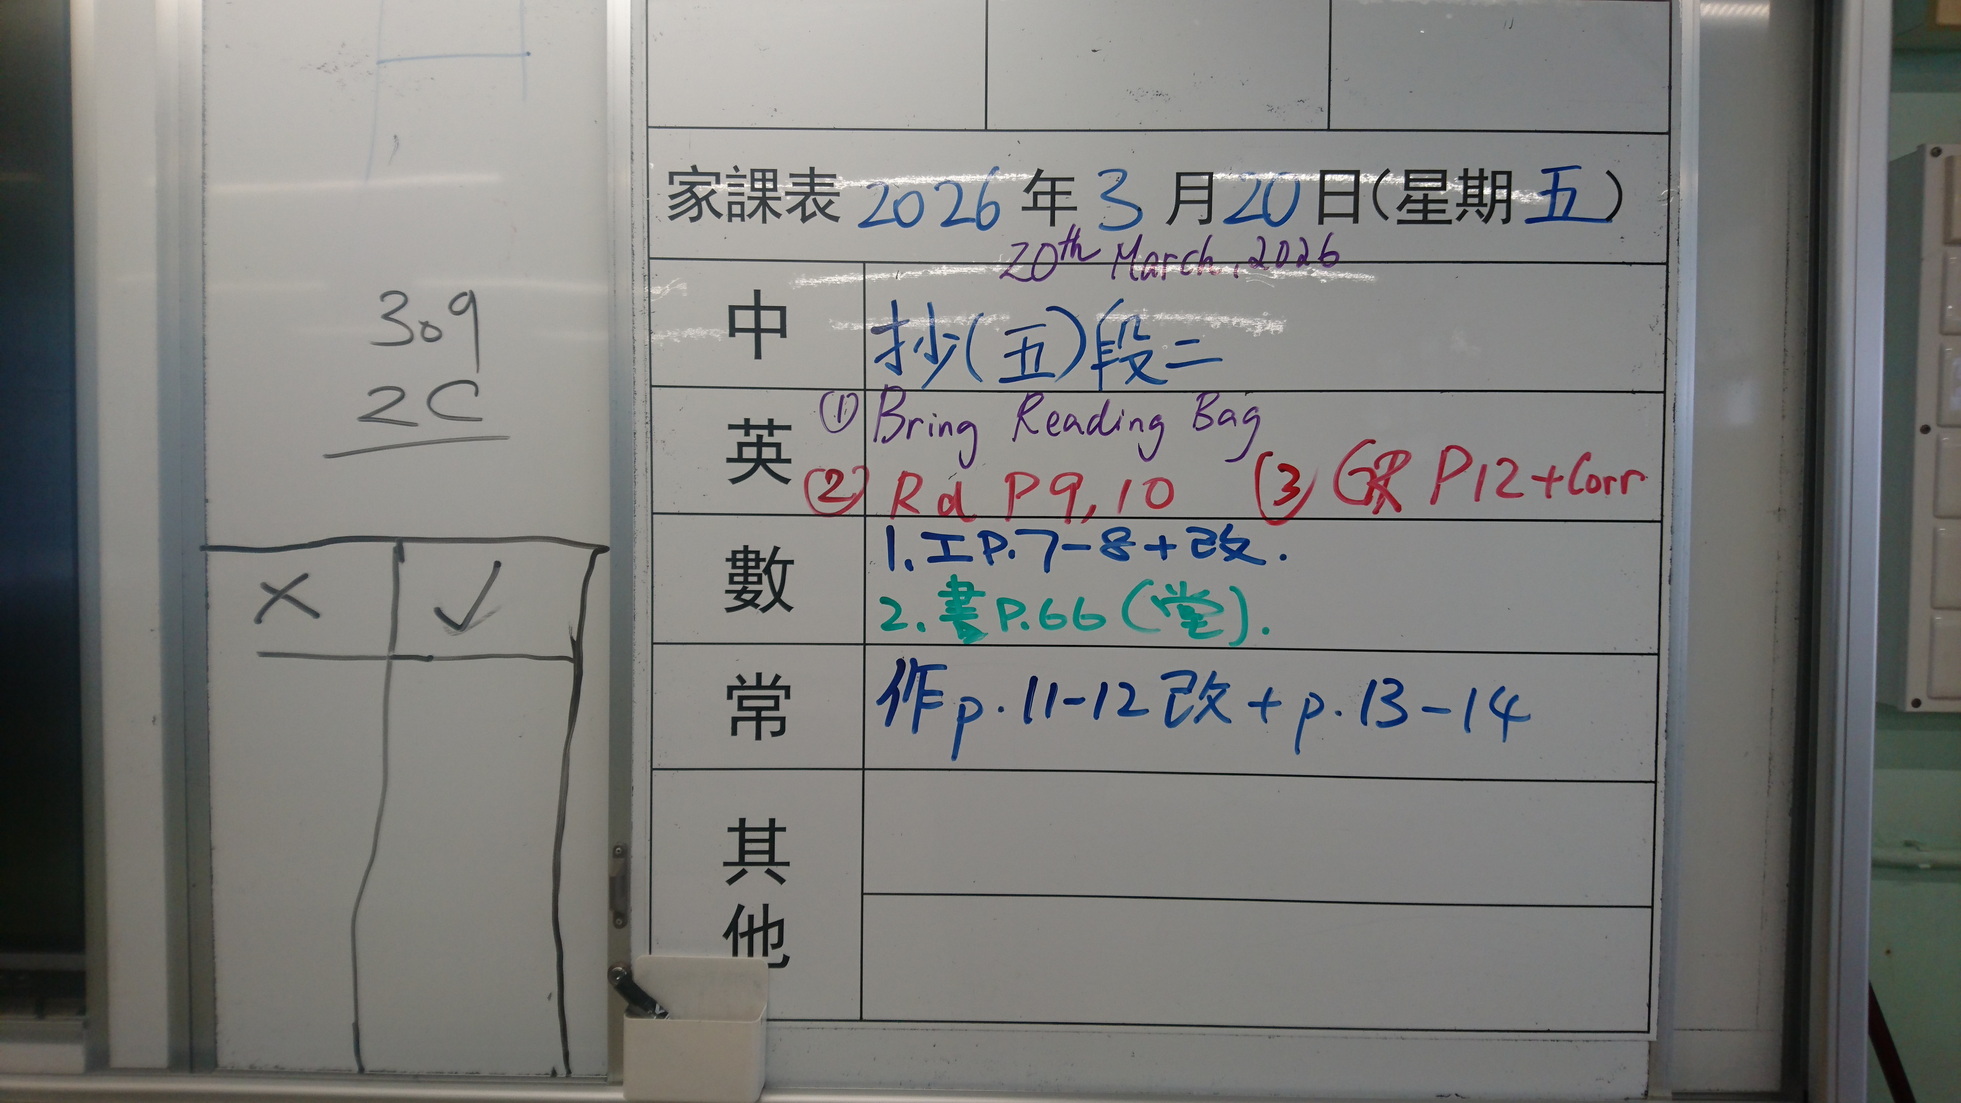 309
2C
× ✓
家課表 2026 年 3 月 20 日(星期 五)
20th March, 2026
中 抄(五)段二
英 ① Bring Reading Bag
② Rd P9, 10 ③ GR P12 + Corr
數 1. 工P.7-8 + 改.
2. 書P.66 (堂).
常 作p.11-12改 + p.13-14
其他